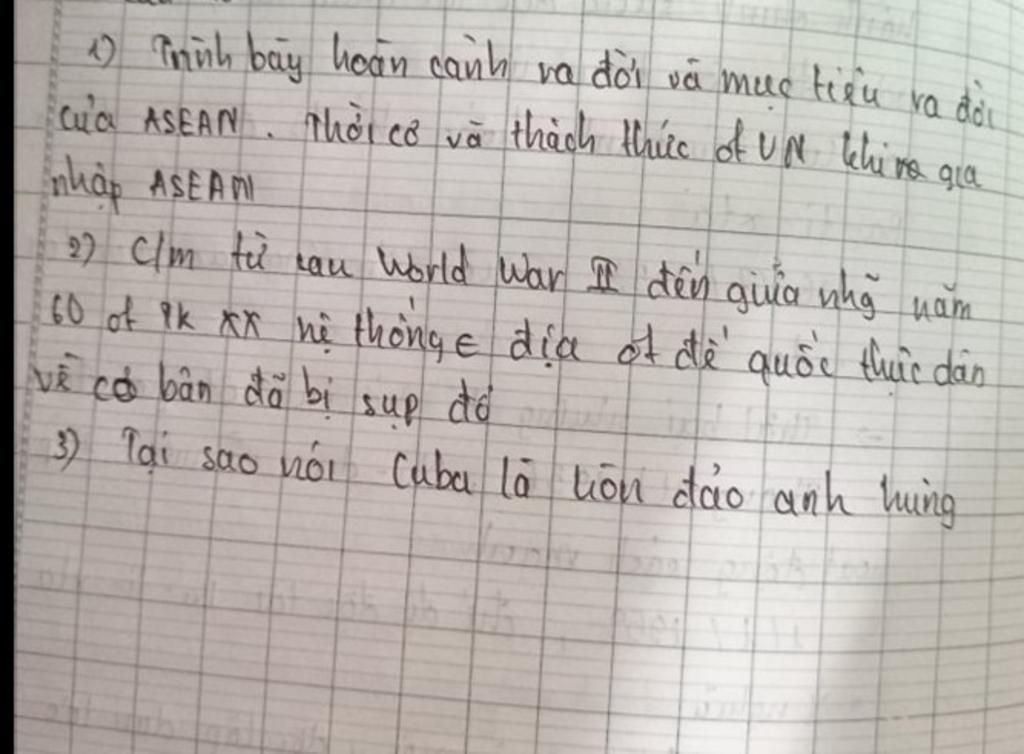 1) Trình bày hoàn cảnh ra đời và mục tiêu ra đời
của ASEAN. Thời cơ và thách thức of VN khi ra gia
nhập ASEAN
2) C/m từ sau World War II đến giữa nhg~ năm
60 of tk XX hệ thống € địa of đế quốc thực dân
về cơ bản đã bị sụp đổ
3) Tại sao nói Cuba là hòn đảo anh hùng